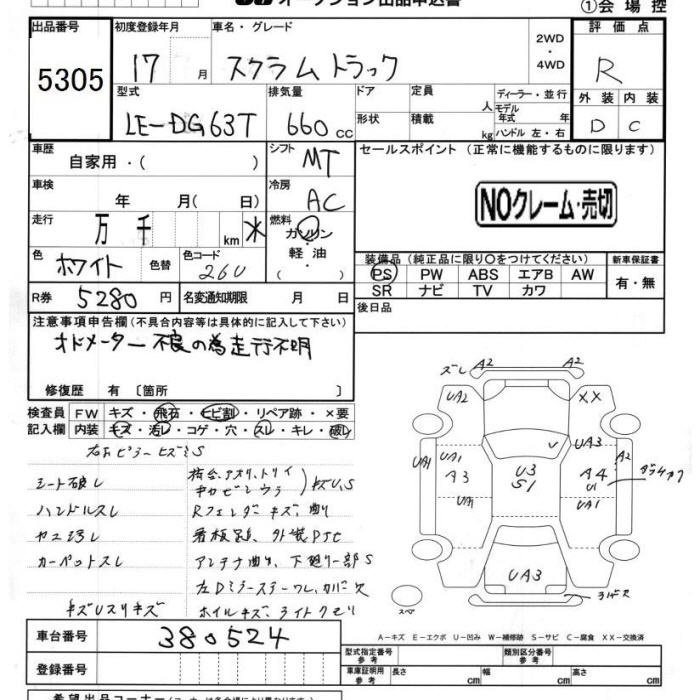 オークション出品申込書
①会場控
出品番号 初度登録年月 車名・グレード 評価点
5305 17 月 スクラムトラック 2WD・4WD R
型式 排気量 ドア 定員 人 ディーラー・並行 外装 内装
LE-DG63T 660cc 形状 積載 kg モデル年式 年 ハンドル 左・右 D C
車歴 自家用・( ) シフト MT セールスポイント (正常に機能するものに限ります)
車検 年 月( 日) 冷房 AC
NOクレーム・売切
走行 万 千 km 燃料 ガソリン・軽油
色 ホワイト 色替 色コード 26U
装備品 (純正品に限り〇をつけてください) 新車保証書
PS PW ABS エアB AW 有・無
SR ナビ TV カワ
R券 5280円 名変通知期限 月 日 後日品
注意事項申告欄 (不具合内容等は具体的に記入して下さい)
オドメーター不良の為走行不明
修復歴 有〔箇所 〕
検査員 FW キズ・飛石・ヒビ割・リペア跡・×要
記入欄 内装 キズ・汚レ・コゲ・穴・スレ・キレ・破レ
シート破レ
ハンドルスレ
カーペットスレ
Rフェンダーキズ、曲り
アンテナ曲り、下廻り一部S
ホイルキズ、ライトクモリ
ズレ A2 A2
UA2 XX
UA1 UA1 UA3 A2
A3 U3 S1 A4 U1
UA1 UA1
UA3
スペア
A-キズ E-エクボ U-凹み W-補修跡 S-サビ C-腐食 XX-交換済
車台番号 380524
登録番号
型式指定番号 参考 類別区分番号 参考
車庫証明用 参考 長さ cm 幅 cm 高さ cm
希望出品コーナー